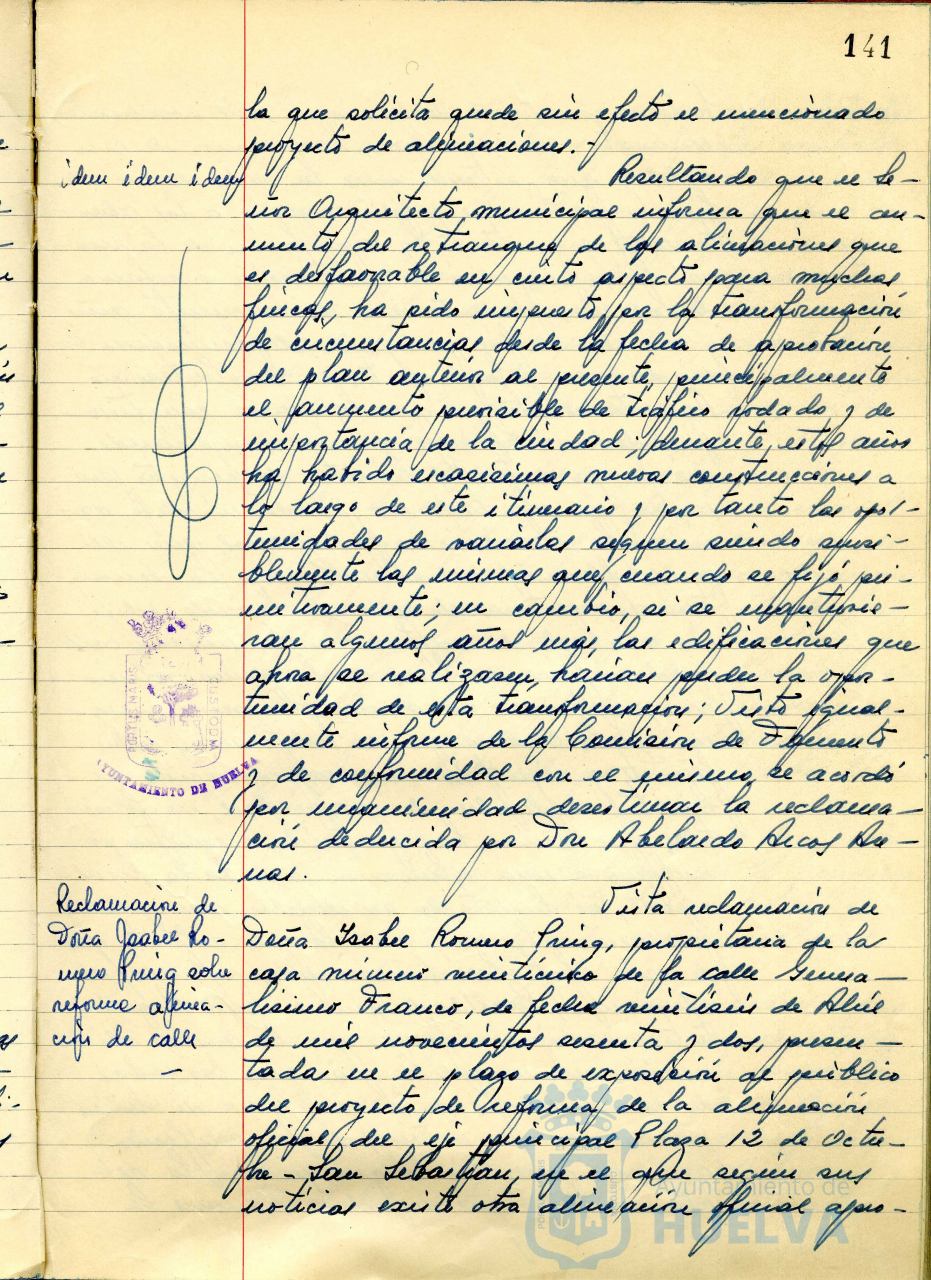 141
la que solicita quede sin efecto el mencionado
proyecto de alineaciones.-
idem idem idem
Resultando que el Se-
ñor Arquitecto municipal informa que el au-
mento del retranqueo de las alineaciones que
es desfavorable en cierto aspecto para muchas
fincas, ha sido impuesto por la transformación
de circunstancias desde la fecha de aprobación
del plan anterior al presente, principalmente
el aumento previsible de tráfico rodado y de
importancia de la ciudad; durante estos años
ha habido escasísimas nuevas construcciones a
lo largo de este itinerario y por tanto las opor-
tunidades de variarlas siguen siendo sensi-
blemente las mismas que cuando se fijó pri-
mitivamente; en cambio, si se mantuvie-
ran algunos años más, las edificaciones que
ahora se realizasen, harían perder la opor-
tunidad de esta transformación; Visto igual-
mente informe de la Comisión de Fomento
y de conformidad con el mismo, se acordó
por unanimidad desestimar la reclama-
ción deducida por Don Abelardo Arcos Are-
nas.
PORTUS MARIS
CUSTODIA
AYUNTAMIENTO DE HUELVA
Reclamación de
Doña Isabel Ro-
mero Puig sobre
reforma alinea-
ción de calle
Vista reclamación de
Doña Isabel Romero Puig, propietaria de la
casa número veinticinco de la calle Genera-
lísimo Franco, de fecha veintiseis de Abril
de mil novecientos sesenta y dos, presen-
tada en el plazo de exposición al público
del proyecto de reforma de la alineación
oficial del eje principal Plaza 12 de Octu-
bre - San Sebastián, en el que según sus
noticias existe otra alineación oficial apro-
Ayuntamiento de
HUELVA